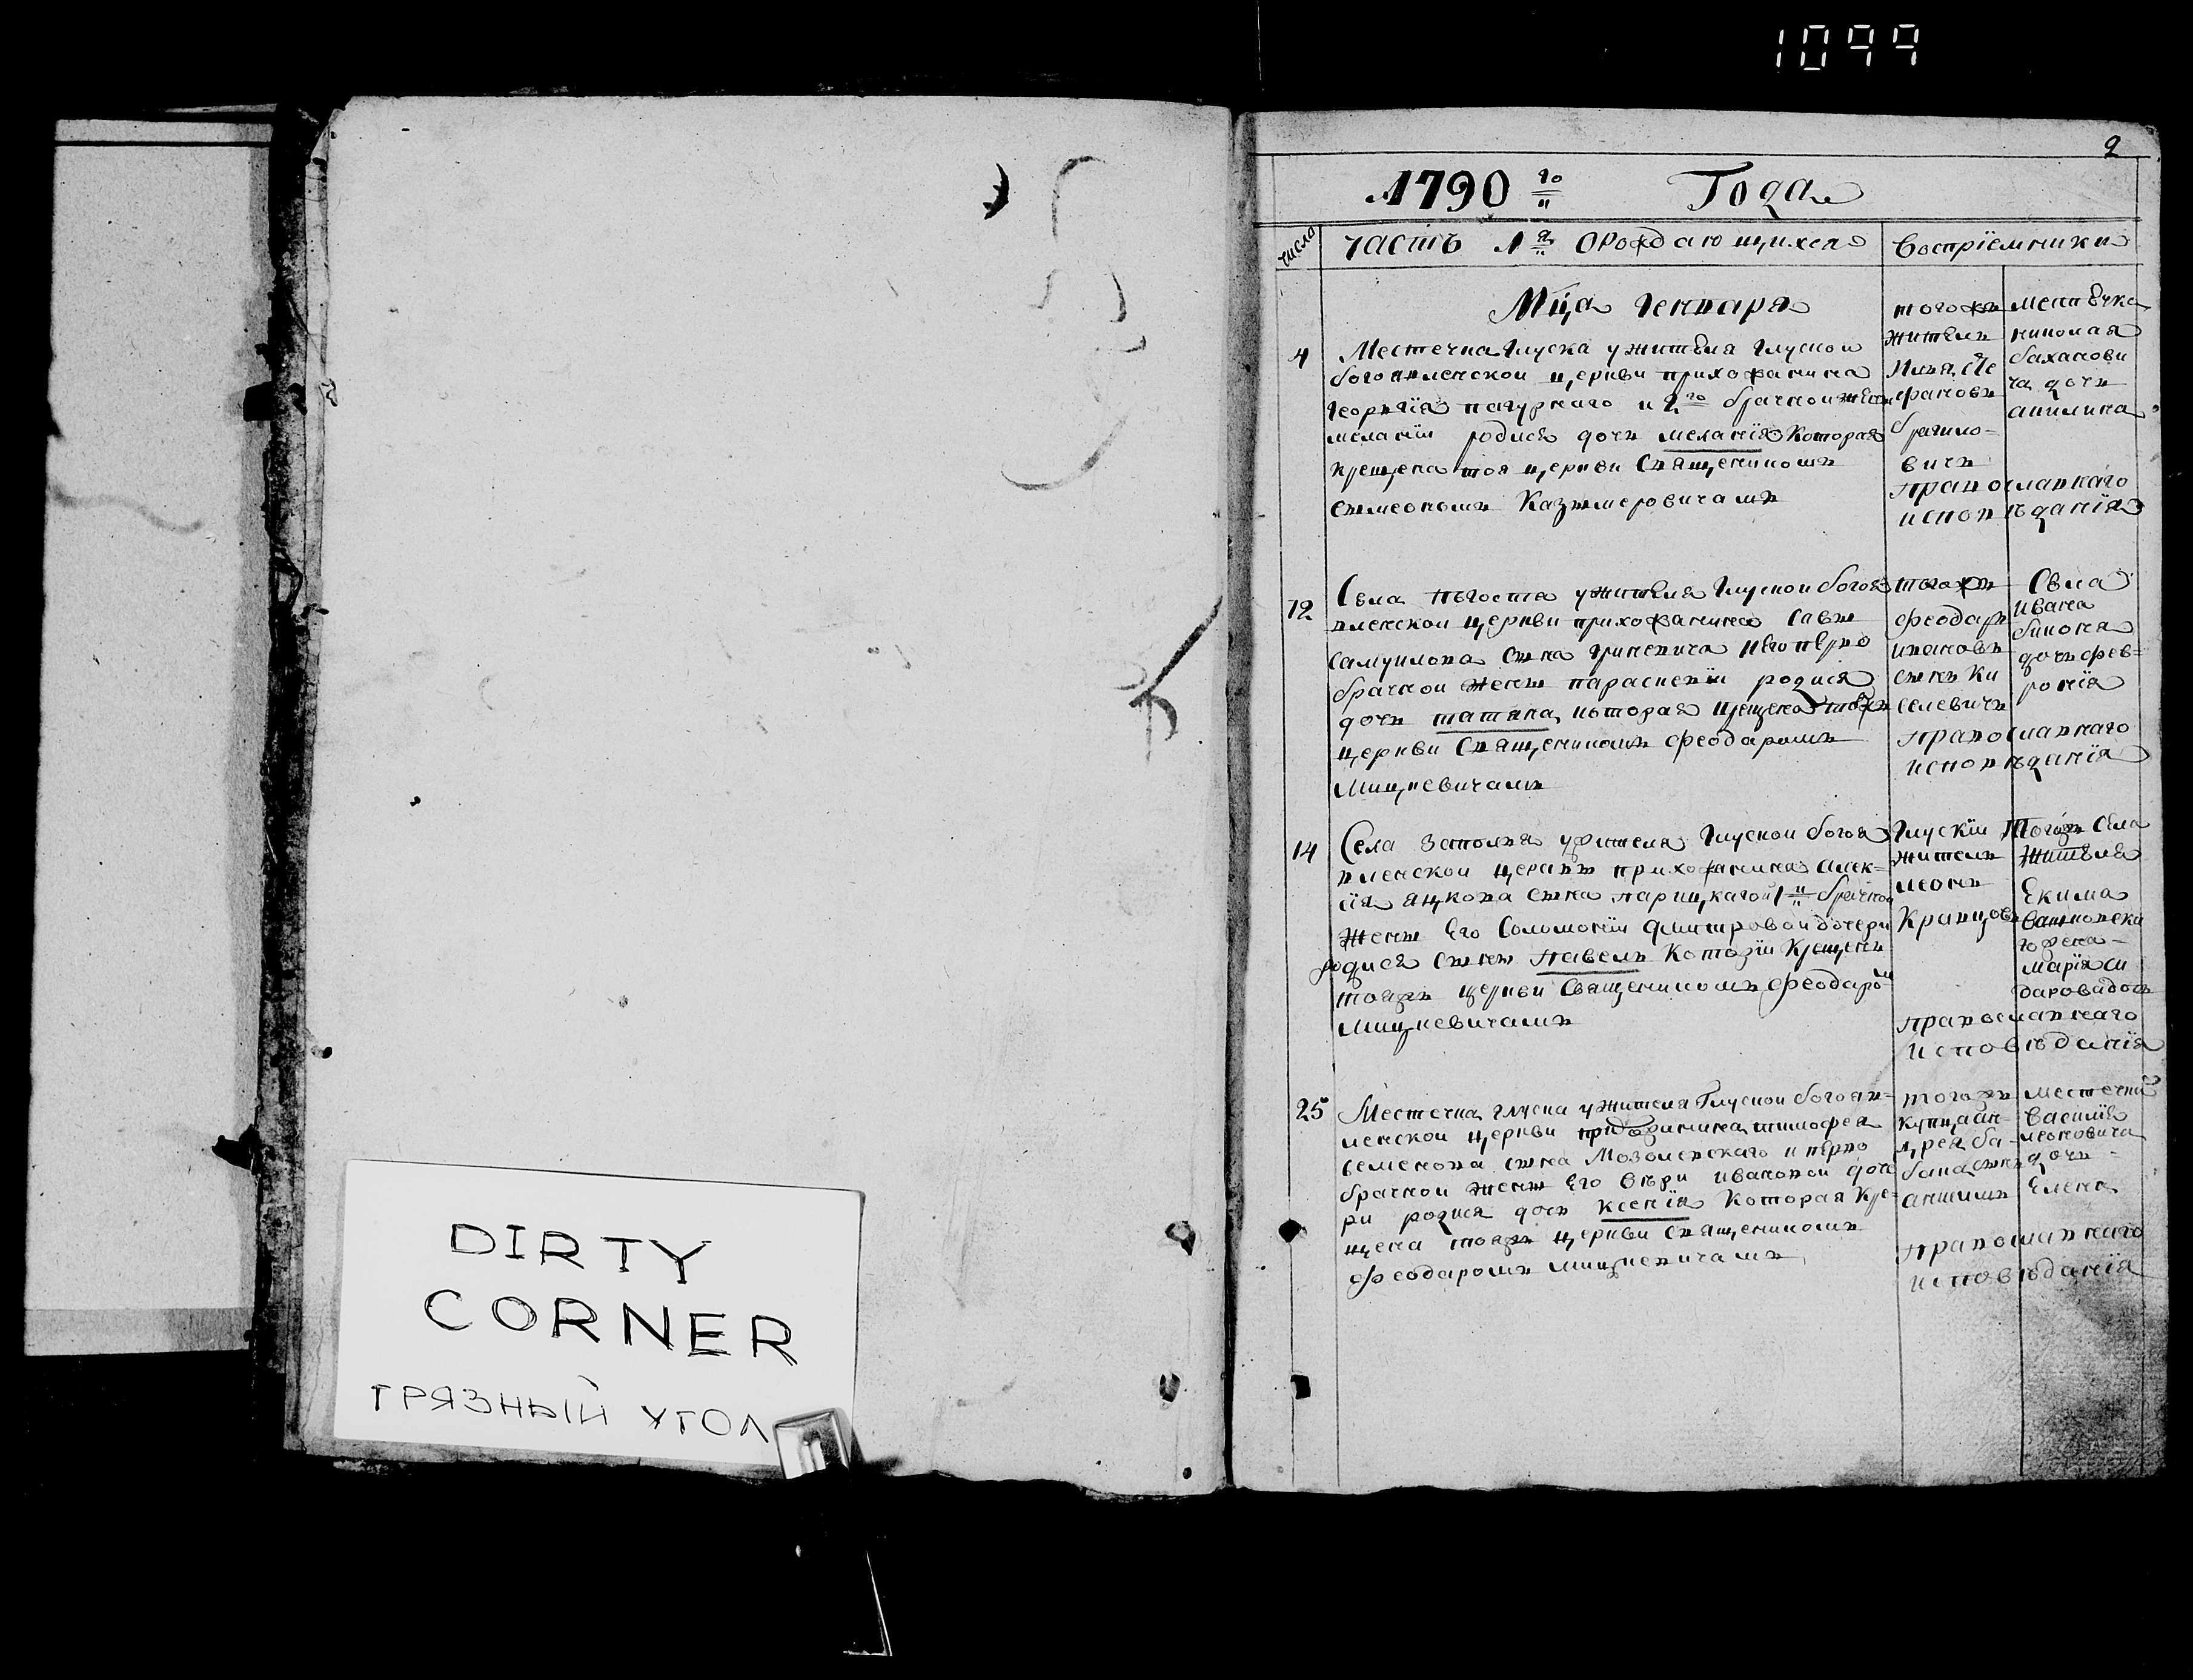 1099
2
1790 го Года
числа
часть 1я о рождающихся
Воспріемники
Мца Генваря
4
Местечка Глуска у жителя Глуской
богоявленской церкви прихожанина
Георгїя и 2го брачной жены
меланїи родися дочь меланїя которая
крещена тоя церкви Священникомъ
Сымеономъ Казымеровичамъ
тогожъ
житель
Илья Сте
фановъ
вичъ
местечка
николая
баханови
ча дочь
православнаго
исповѣданїя
12
Села погоста у жителя Глуской богоя
вленской церкви прихожанина Савы
Самуилова сына Гриневича и его перво
брачной жены параскевїи родися
дочь татяна, которая крещена тояжъ
церкви Священникомъ феодаромъ
Мицкевичамъ
тогожъ
феодаръ
ивановъ
сынъ Ки
селевичъ
Села
Ивана
дочь фев=
ронїя
православнаго
исповѣданїя
14
Села Заполья у жителя Глуской богоя
вленской церквы прихожанина алек=
сїя яцкова сына брачной
жены Его Соломонїи дмитровой дочери
родися сынъ павелъ которїи крещенъ
тояжъ церкви Священникомъ феодаромъ
Мицкевичамъ
Глускїи
житель
леонъ
Кравцовъ
Тогожъ Села
Жителя
Екима
жена-
марїя си
дарова дочь
православнаго
исповѣданїя
25
Местечка глуска у жителя Глуской богояв=
ленской церкви прихожанина тимофея
семенова сына Мозолевскаго и перво
брачной жены Его вѣри ивановой доче
ри родися дочь ксенїя которая кре=
щена тояжъ церкви Священникомъ
феодаромъ мицкевичамъ
тогожъ
купца ан-
дрея ба-
сынъ
местечка
василїя
леоновича
дочь-
Елена
православнаго
исповѣданїя
DIRTY
CORNER
ГРЯЗНЫЙ УГОЛ